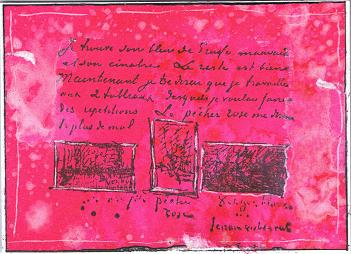 Je trouve son bleu de Prusse mauvais
et son cinabre. Le reste est bien
Maintenant je te dirai que je travaille
aux 2 tableaux desquels je voulais faire
des répétitions Le pêcher rose me donne
le plus de mal
pêcher
rose